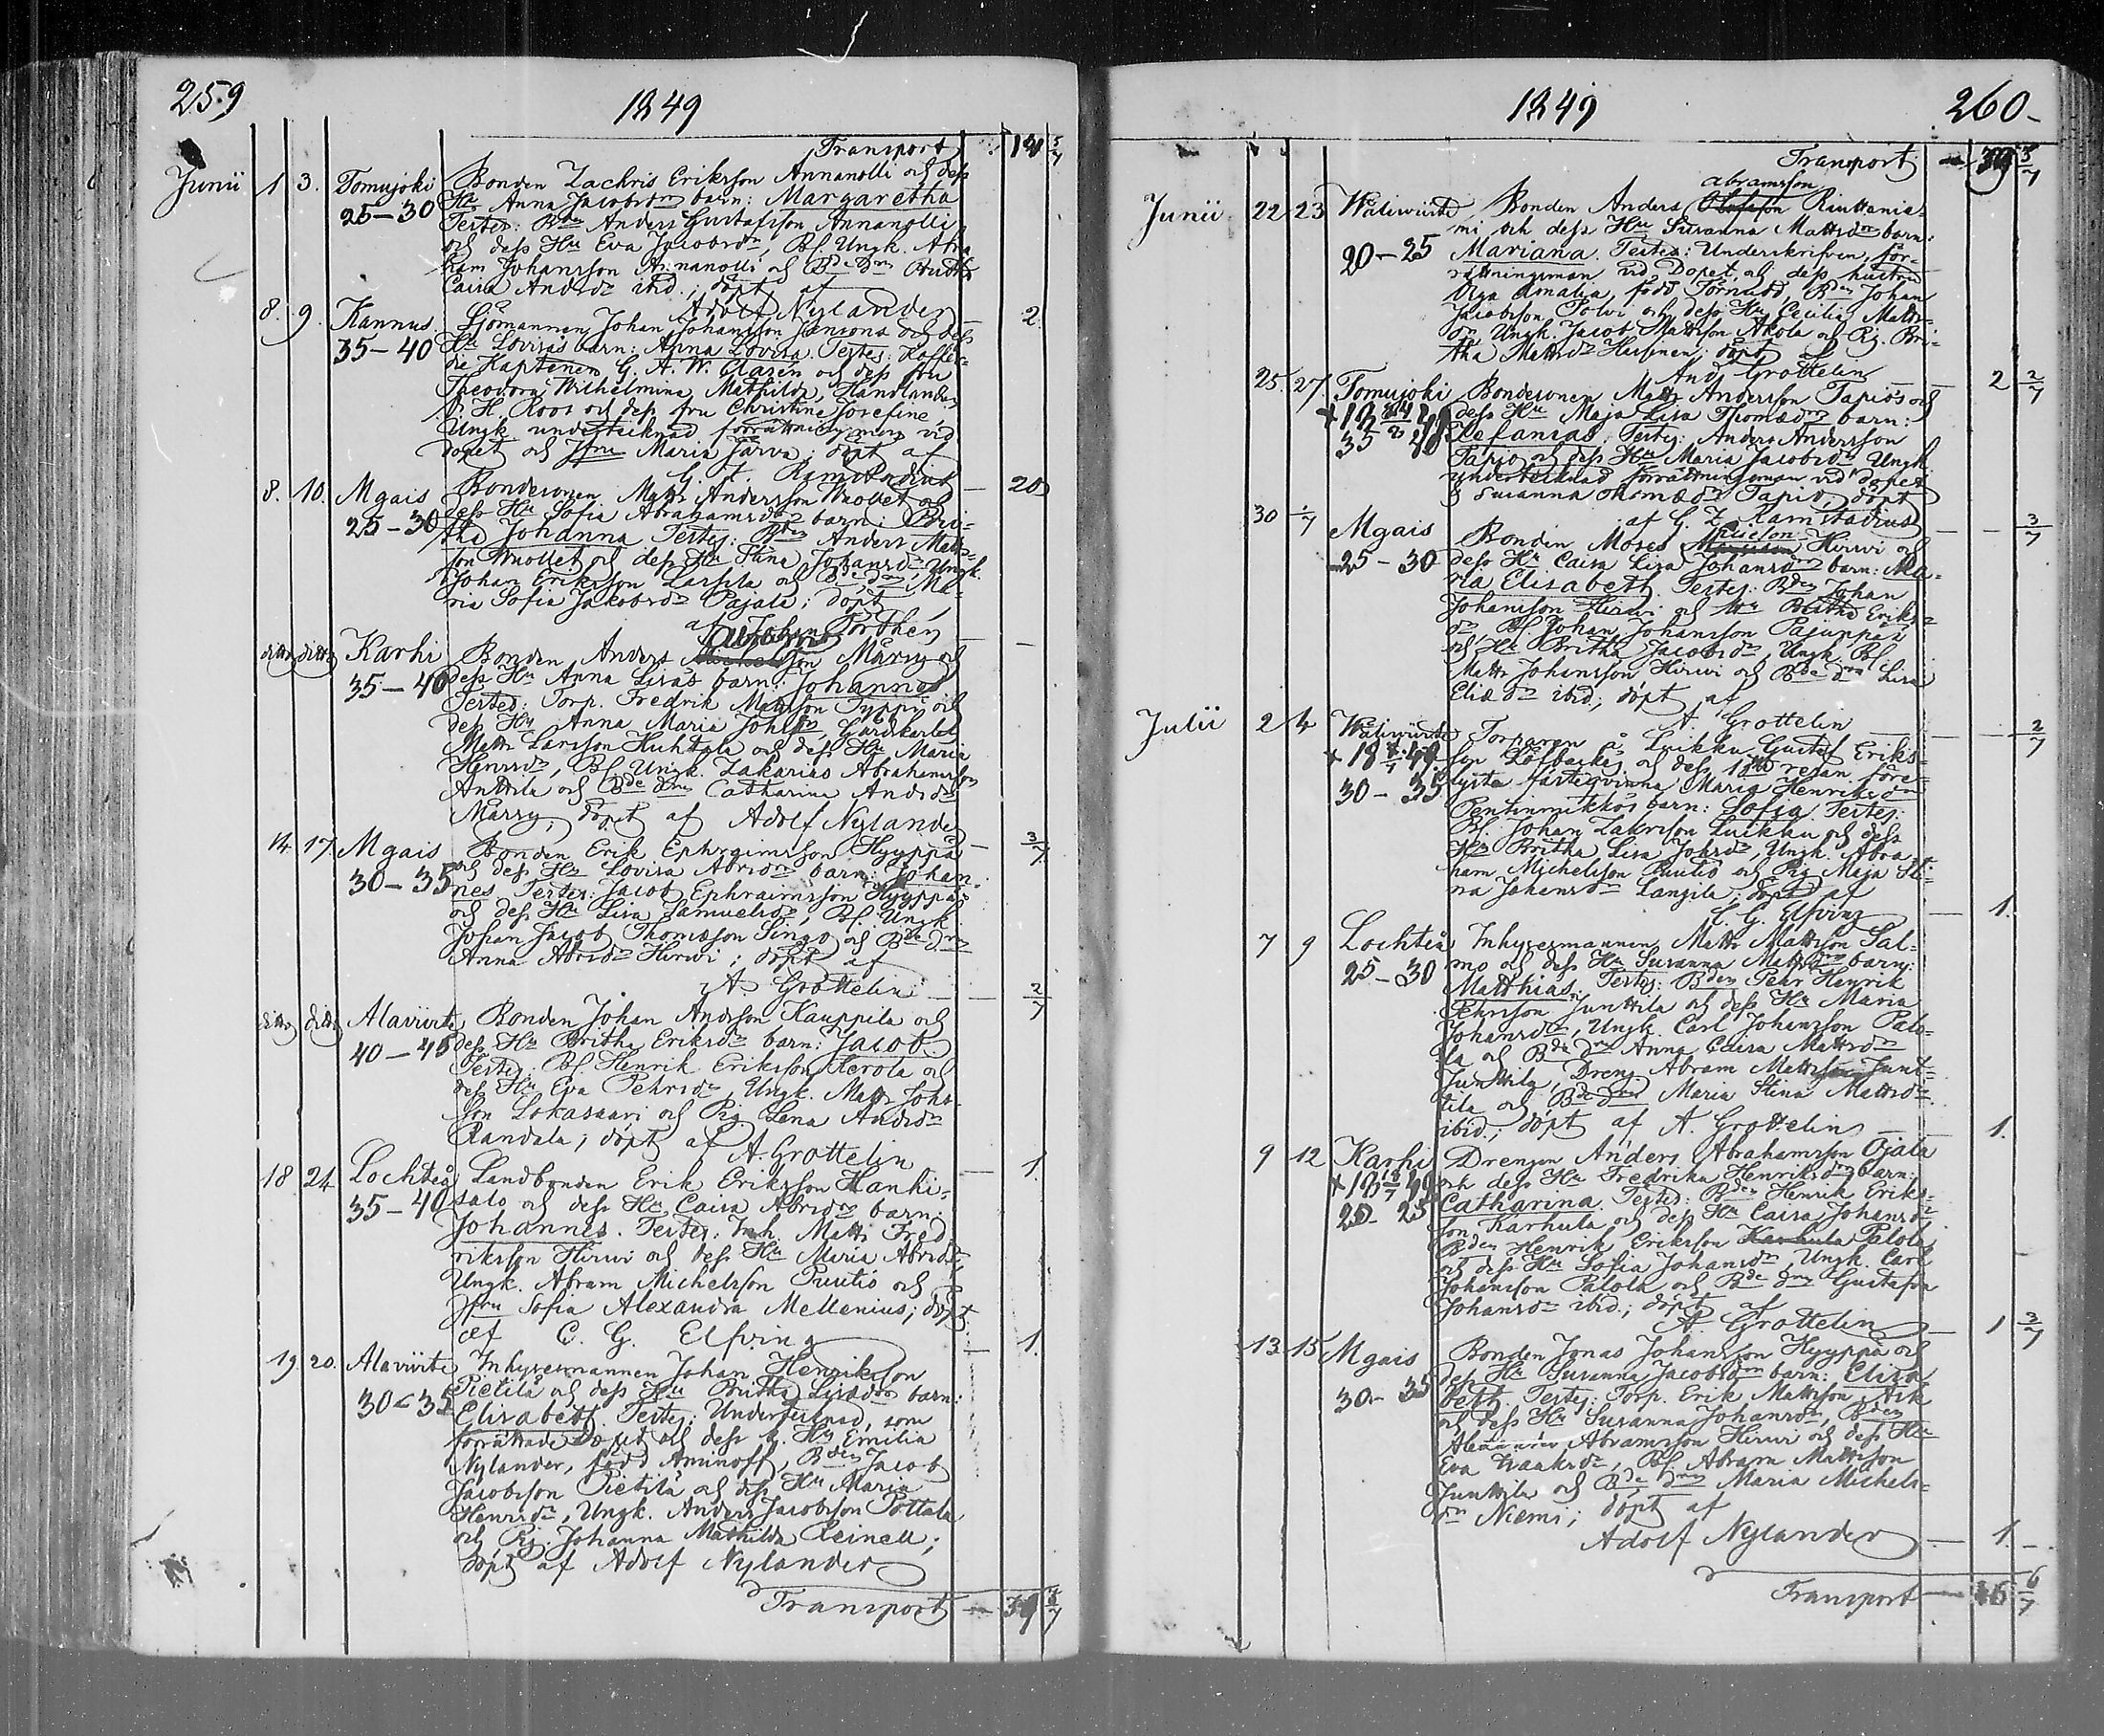 259
1849
Transport 14 5/7
Junii 1 3. Tomujoki Bonden Zachris Eriksson Annanolli och dess
25-30 Hu Anna Jacobsdr barn: Margaretha
Testes: Bden Anders Gustafsson Annanolli
och dess Hu Eva Jacobsdr, Bs. Ungk. Abra
ham Johansson Annanolli och Bde dr
Caisa Andsdr ibid.; döpt af
Adolf Nylander 2.
8. 9. Kannus Sjömannen Johan Johansson Jansons och dess
35-40 Hu Lovisas barn: Anna Lovisa. Testes:
die Kaptenen G. A. W. Clasen och dess fru
Theodora Wilhelmina Mathilda, Handlanden
H. Roos och dess fru Christine Josefine
Ungk undertecknad förrättningsman vid
dopet och Jfru Maria Jarva; döpt af
G. Z. Ramstadius 20
8. 10. Mgais Bondesonen Matts Andersson Wuollet och
25-30 dess Hu Sofia Abrahamsdr barn: Bri-
tha Johanna Testes: Bden Anders Matts-
son Wuollet och dess Hu Stina Johansdr Ungk.
Johan Eriksson Lassila och Bde dr Ma-
ria Sofia Jakobsdr Pajala; döpt
af Johan Porthén
ditto ditto Karhi Bonden Anders Michelsson Märsy och
35-40 dess Hu Anna Lisas barn: Johannes
Testes: Torp. Fredrik Mattsson Typpö och
dess Hu Anna Maria Johsdr, Gårdskarlen
Matts Larsson Huhtala och dess Hu Maria
Henrsdr, Bs. Ungk. Zakarias Abrahamsson
Anttila och Bde dr Catharina Andsdr
Märsy; döpt af Adolf Nylander 3/7
14 17 Mgais Bonden Erik Ephraimsson Hyyppä
30-35 och dess Hu Lovisa Abrsdr barn: Johan-
nes Testes: Jacob Ephraimsson Hyyppä
och dess Hu Lisa Samuelsdr, Bs. Ungk
Johan Jacob Thomasson Singo och Bde dr
Anna Abrsdr Hirvi; döpt af
A. Grottelin 2/7
ditto ditto Alaviirte Bonden Johan Andsson Kauppila och
40-45 dess Hu Britha Eriksdr barn: Jacob.
Testes: Bs. Henrik Eriksson Kerola och
dess Hu Eva Pehrsdr, Ungk. Matts Johs-
son Lokasaari och Pig. Lena Andsdr
Randala; döpt af
A. Grottelin 1.
18 24 Lochteå Landbonden Erik Eriksson Hanhi-
35-40 salo och dess Hu Caisa Abrsdr barn:
Johannes. Testes: Inh. Matts Fred
riksson Hirvi och dess Hu Maria Abrsdr,
Ungk. Abram Michelsson Puutio och
Jfru Sofia Alexandra Mellenius; döpt
af C. G. Elfving 1.
19. 20. Alaviirte Inhysesmannen Johan Henriksson
30-35 Pietilä och dess Hu Britha Lisas barn:
Elisabeth. Testes: Undertecknad, som
förrättade dopet och dess k. Hu Emilia
Nylander, född Aminoff, Bden Jacob
Jacobsson Pietilä och dess Hu Maria
Henrsdr, Ungk. Anders Jacobsson Pottala
och Pig. Johanna Mathilda Reinell;
döpt af Adolf Nylander
Transport 39 3/7
1849
260
Transport 39 3/7
Abramsson
Junii 22 23 Waliviirte Bonden Anders Rauttania-
mi och dess Hu Susanna Mattsdr barn:
20-25 Mariana. Testes: Underskrifven, för-
rättningsman vid Dopet, och dess hustru
Olga Amalia, född Törnudd, Bden Johan
Jacobsson Polvi och dess Hu Cecilia Matts-
dr, Ungk. Jacob Mattsson Akola och Pig. Bri-
tha Mattsdr; döpt af
And. Grottelin 2 2/7
25. 27 Tomujoki Bondesonen Matts Andersson Tapios och
dess Hu Maja Lisa Thomasdr barn:
35-40 Zefanias. Testes: Anders Andersson
Tapio och dess Hu Maria Jacobsdr Ungk.
undertecknad förrättningsman vid dopet
o Susanna Thomasdr Tapio; döpt
af G. Z. Ramstadius 3/7
30 1/7 Mgais Bonden Moses Eliesson Hirvi och
25-30 dess Hu Caisa Lisa Johansdr barn: Ma-
ria Elisabeth. Testes: Bden Johan
Johansson Hirvi och Hu Britha Eriks-
dr Bs. Johan Johansson Pajuppää
och Hu Britha Jacobsdr, Ungk. Bs.
Matts Johansson Hirvi och Bde dr Lisa
Eliædr ibid.; döpt af
A. Grottelin 2/7
Julii 2 4 Waliviirte Torparen å Luikku Gustaf Eriks-
son Löfbacka och dess redan före-
30-35 lysta fästeqvinna Maria Henriksdr
Penttinmikkos barn: Sofia. Testes:
Bs. Johan Zakrisson Luikku och dess
Hu Britha Lisa Johsdr, Ungk. Abra-
ham Michelsson Puutio och Pig. Maja Sti-
na Johansdr Langila; döpt af
C. G. Elfving 1.
7 9 Lochteå Inhysesmannen Matts Mattsson Sal-
25-30 mo och dess Hu Susanna Mattsdr barn:
Matthias. Testes: Bden Pehr Henrik
Pehrsson Junttila och dess Hu Maria
Johansdr, Ungk. Carl Johansson Palo-
la och Bde dr Anna Caisa Mattsdr
Junttila, Dreng Abram Mattsson Junt-
tila och Bde dr Maria Stina Mattsdr
ibid.; döpt af A. Grottelin 1.
9 12 Karhi Drengen Anders Abrahamsson Ojala
och dess Hu Fredrika Henriksdr barn:
20-25 Catharina. Testes: Bden Henrik Eriks-
son Karhula och dess Hu Caisa Johansdr
Bden Henrik Eriksson Karhula Palola
och dess Hu Sofia Johansdr, Ungk. Carl
Johansson Palola och Bde dr Gustafva
Johansdr ibid.; döpt af
A. Grottelin 1 3/7
13 15 Mgais Bonden Jonas Johansson Hyyppä och
dess Hu Susanna Jacobsdr barn: Elisa-
30-35 beth. Testes: Torp. Erik Mattsson Ask
och dess Hu Susanna Johansdr, Bden
Alexander Abramsson Hirvi och dess Hu
Eva Isaaksdr, Bs. Abram Mattsson
Junttila och Bde dr Maria Michels-
dr Niemi; döpt af
Adolf Nylander 1.
Transport 46 6/7